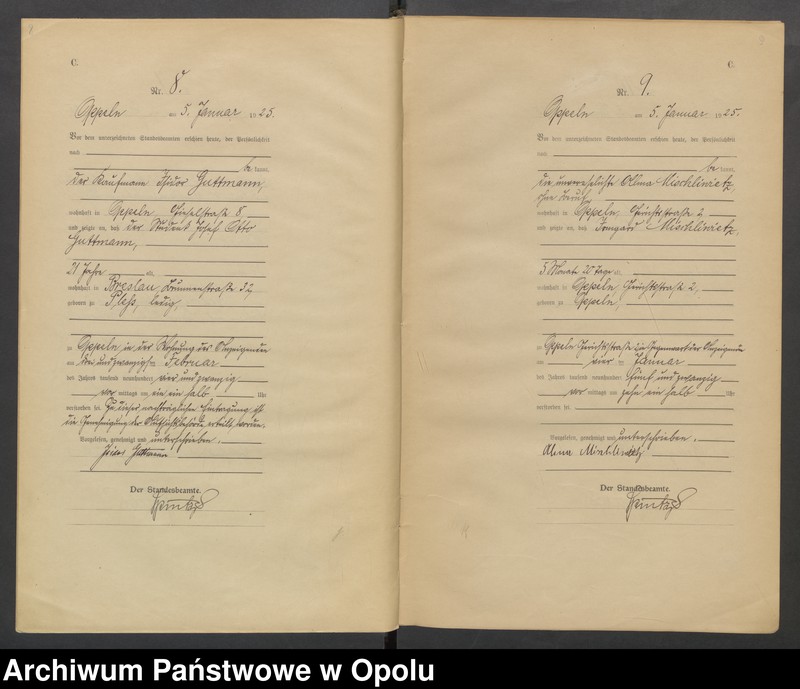 C.
Nr. 8.
Oppeln am 5. Januar 1925.
Vor dem unterzeichneten Standesbeamten erschien heute, der Persönlichkeit
nach
be kannt,
der Kaufmann Isidor Guttmann,
wohnhaft in Oppeln, 8
und zeigte an, daß der Student Josef Otto
Guttmann,
21 Jahre alt,
wohnhaft in Breslau, Brunnenstraße 32,
geboren zu Pleß, ledig,
zu Oppeln, in der Wohnung des Anzeigenden
am drei und zwanzigsten Februar
des Jahres tausend neunhundert vier und zwanzig
vor mittags um ein halb Uhr
verstorben sei. Zu dieser nachträglichen Eintragung ist
die Genehmigung der Aufsichtsbehörde erteilt worden.
Vorgelesen, genehmigt und unterschrieben.
Isidor Guttmann
Der Standesbeamte.
C.
Nr. 9.
Oppeln am 5. Januar 1925.
Vor dem unterzeichneten Standesbeamten erschien heute, der Persönlichkeit
nach
be kannt,
die unverehelichte Alma Mischlinietz,
ohne Beruf
wohnhaft in Oppeln, Gerichtsstraße 2
und zeigte an, daß Irmgard Mischlinietz,
5 Monate 20 Tage alt,
wohnhaft in Oppeln, Gerichtsstraße 2,
geboren zu Oppeln,
zu Oppeln Gerichtsstraße 2 in Gegenwart der Anzeigenden
am vier ten Januar
des Jahres tausend neunhundert fünf und zwanzig
vor mittags um zehn ein halb Uhr
verstorben sei.
Vorgelesen, genehmigt und unterschrieben.
Alma Mischlinietz
Der Standesbeamte.
Archiwum Państwowe w Opolu